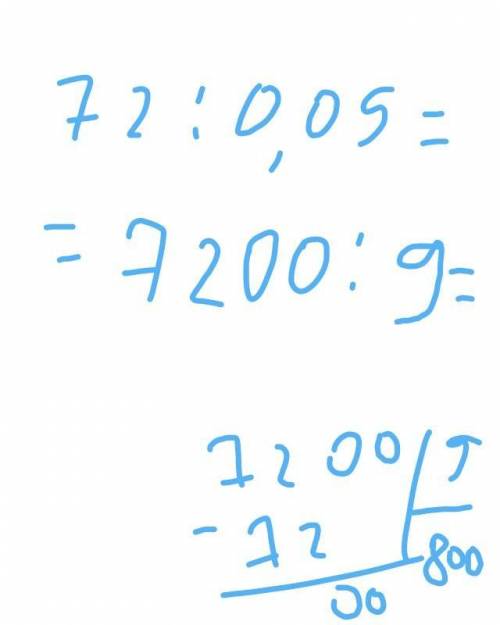 72 : 0,09 =
= 7200 : 9 =
7200 | 9
- 72 | 800
00